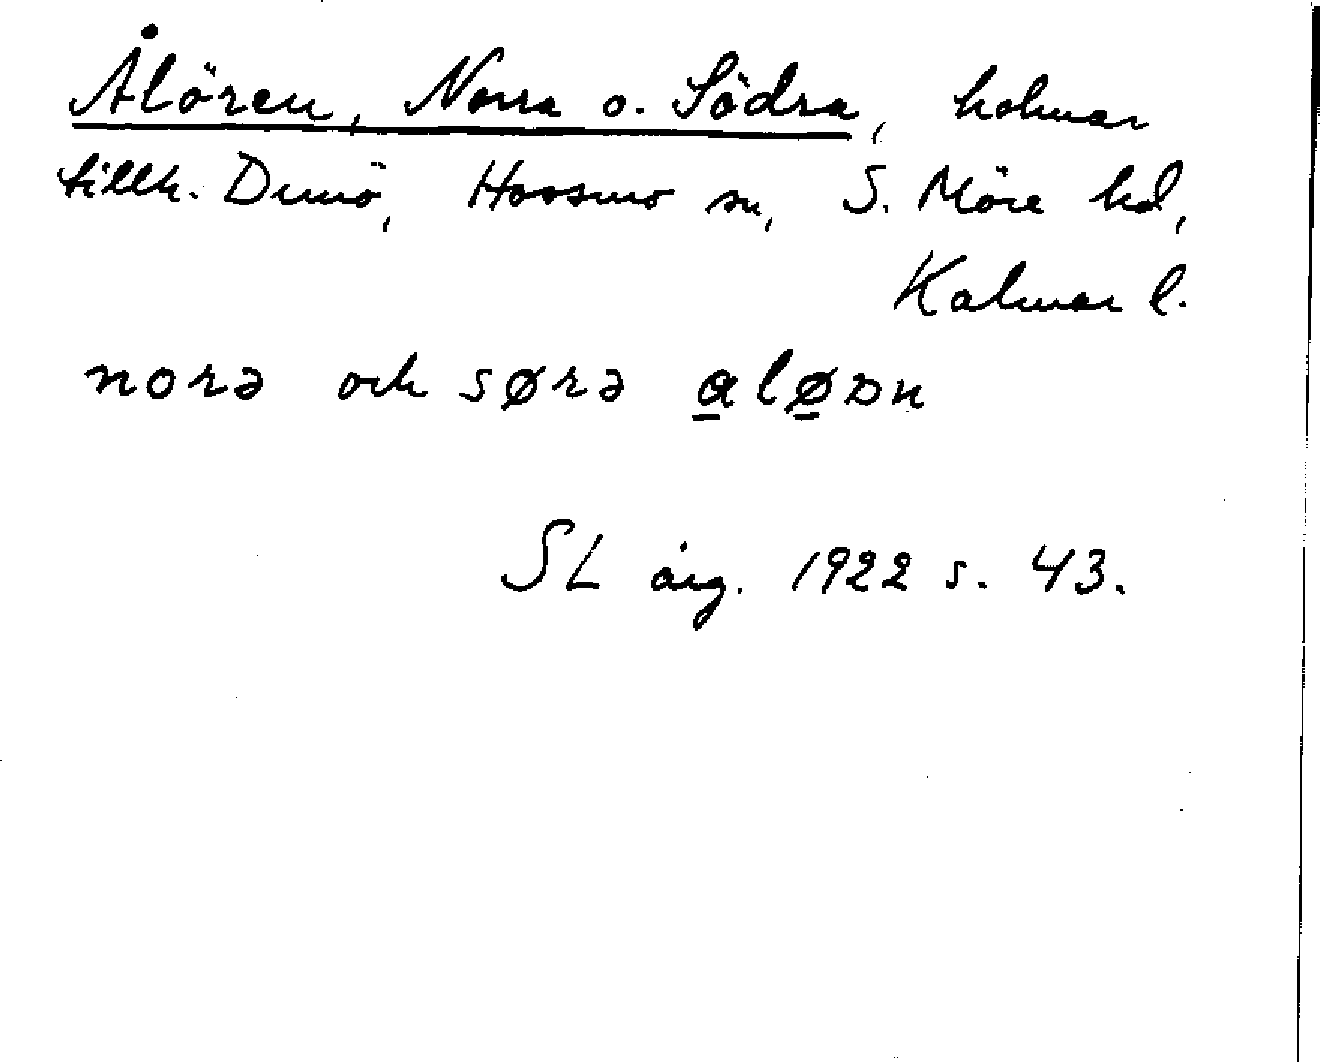 Ålören, Norra o. Södra, holmar
tillh. Dunö, Hossmo sn, S. Möre hd,
Kalmar l.
norə och sørə a̲lø̲ᴅn
SL årg. 1922 s. 43.